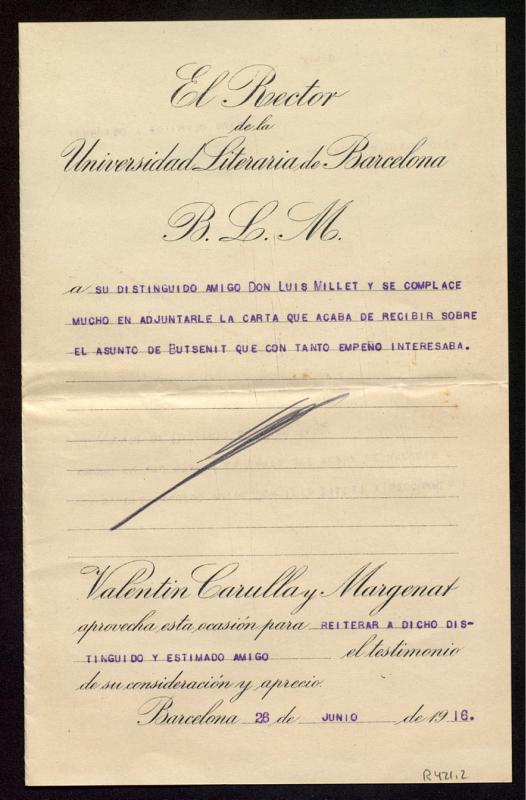 El Rector
de la
Universidad Literaria de Barcelona
B. L. M.
a SU DISTINGUIDO AMIGO DON LUIS MILLET Y SE COMPLACE
MUCHO EN ADJUNTARLE LA CARTA QUE ACABA DE RECIBIR SOBRE
EL ASUNTO DE BUTSENIT QUE CON TANTO EMPEÑO INTERESABA.
Valentin Carulla y Margenat
aprovecha esta ocasión para REITERAR A DICHO DIS-
TINGUIDO Y ESTIMADO AMIGO el testimonio
de su consideración y aprecio.
Barcelona 26 de JUNIO de 1916.
R421.2